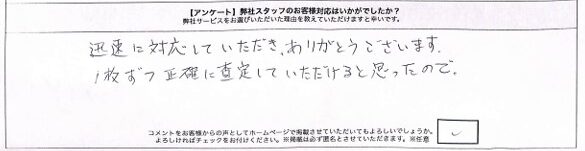 【アンケート】弊社スタッフのお客様対応はいかがでしたか？
弊社サービスをお選びいただいた理由を教えていただけますと幸いです。
迅速に対応していただき、ありがとうございます。
1枚ずつ正確に査定していただけると思ったので。
コメントをお客様からの声としてホームページで掲載させていただいてもよろしいでしょうか。
よろしければチェックをお付けください。※掲載は必ず匿名とさせていただきます。※任意